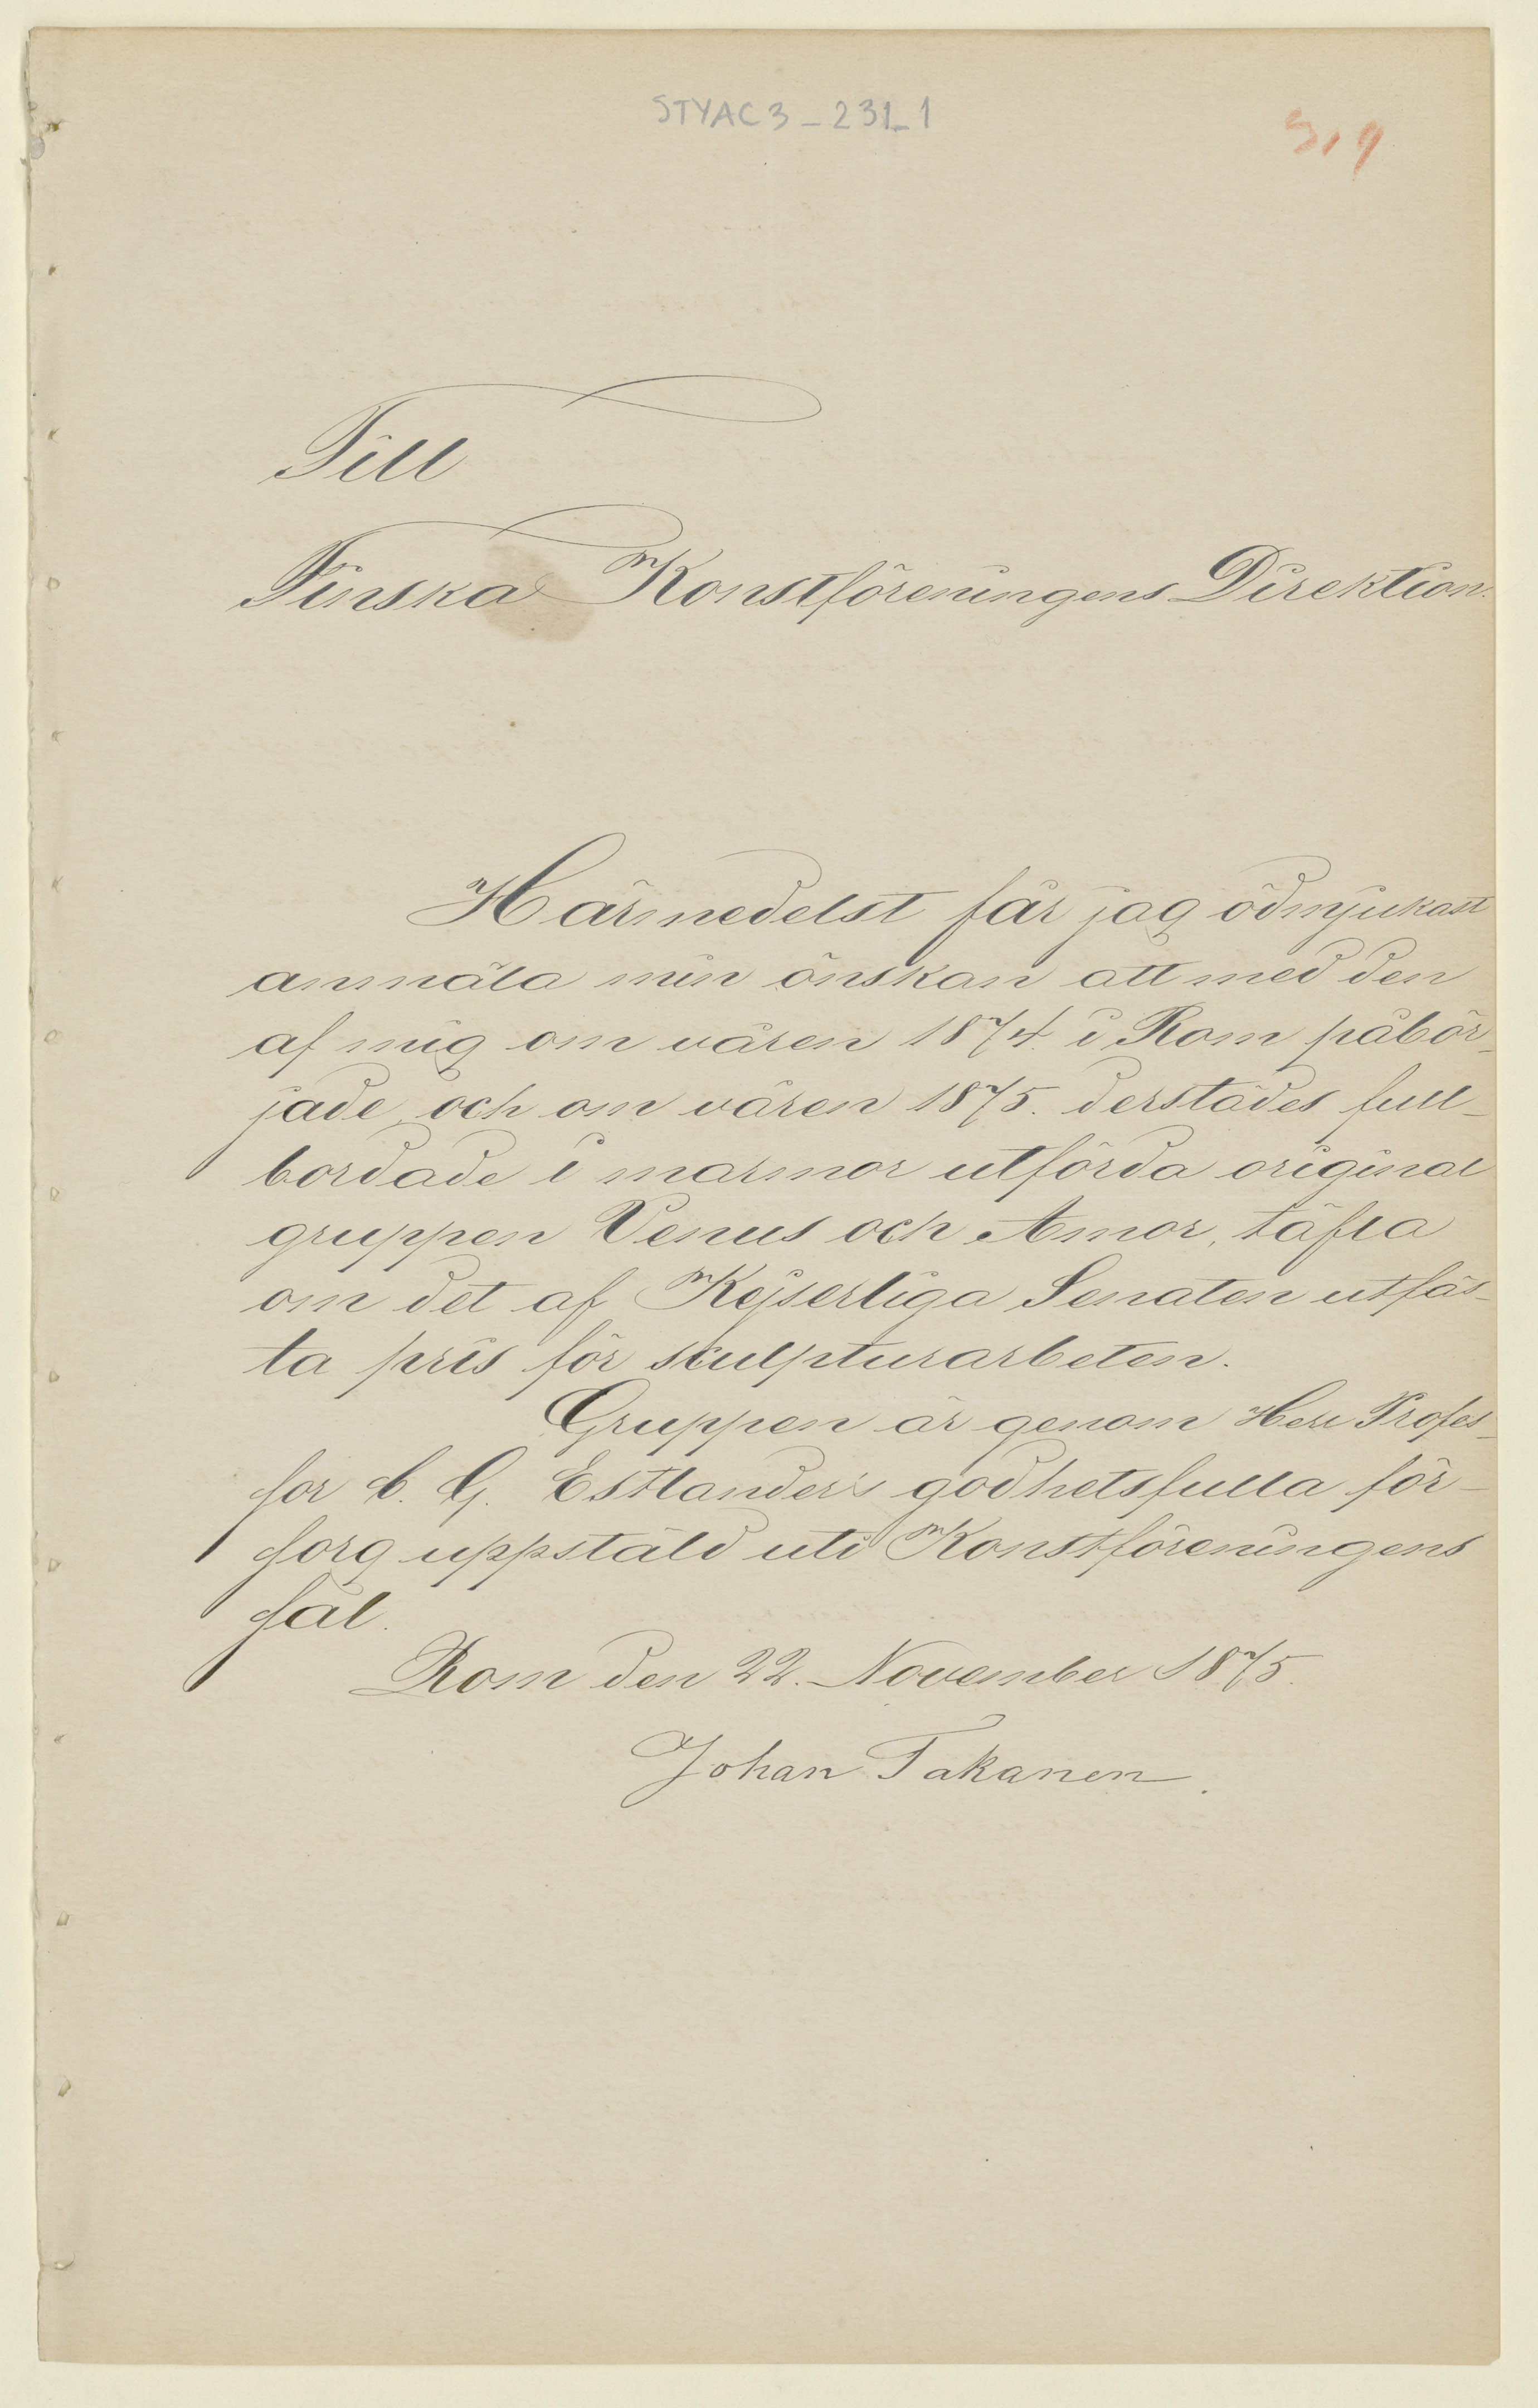 STYAC3_231_1
319
Till
Finska Konstföreningens Direktion.
Härmedelst får jag ödmjukast
anmäla min önskan att med den
af mig om våren 1874 i Rom påbör-
jade och om våren 1875. derstädes full-
bordade i marmor utförda original
gruppen Venus och Amor, täfla
om det af Kejserliga Senaten utfäs-
ta pris för skulpturarbeten.
Gruppen är genom Herr Profes-
sor C. G. Estlander's godhetsfulla för-
sorg uppstäld uti Konstföreningens
sal.
Rom den 22. November 1875.
Johan Takanen.